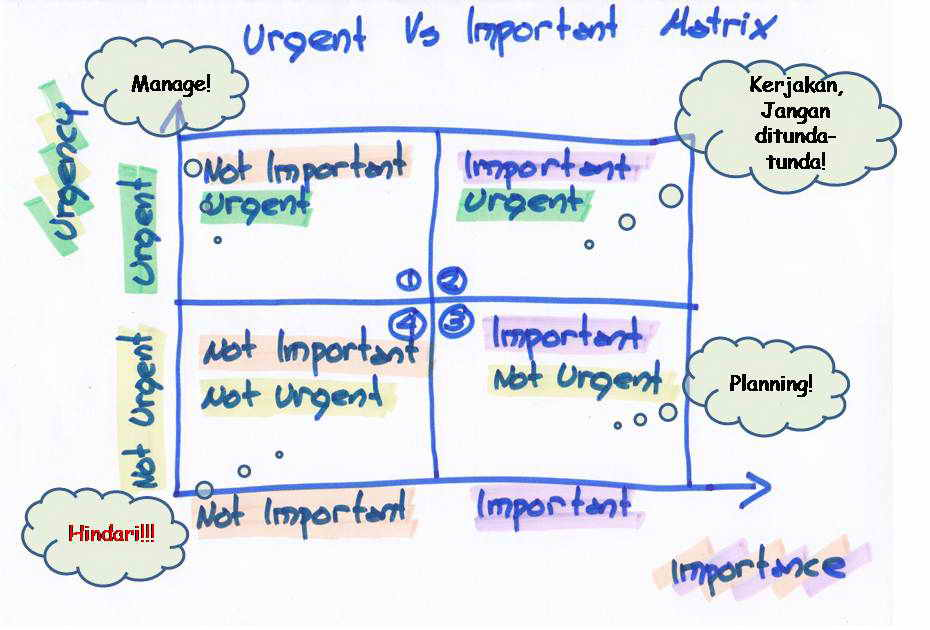 Urgent Vs Important Matrix
Manage!
Kerjakan,
Jangan
ditunda-
tunda!
Urgency
Urgent
Not Important
Urgent
1
Important
Urgent
2
Not Urgent
Not Important
Not Urgent
4
Important
Not Urgent
3
Planning!
Hindari!!!
Not Important
Important
Importance